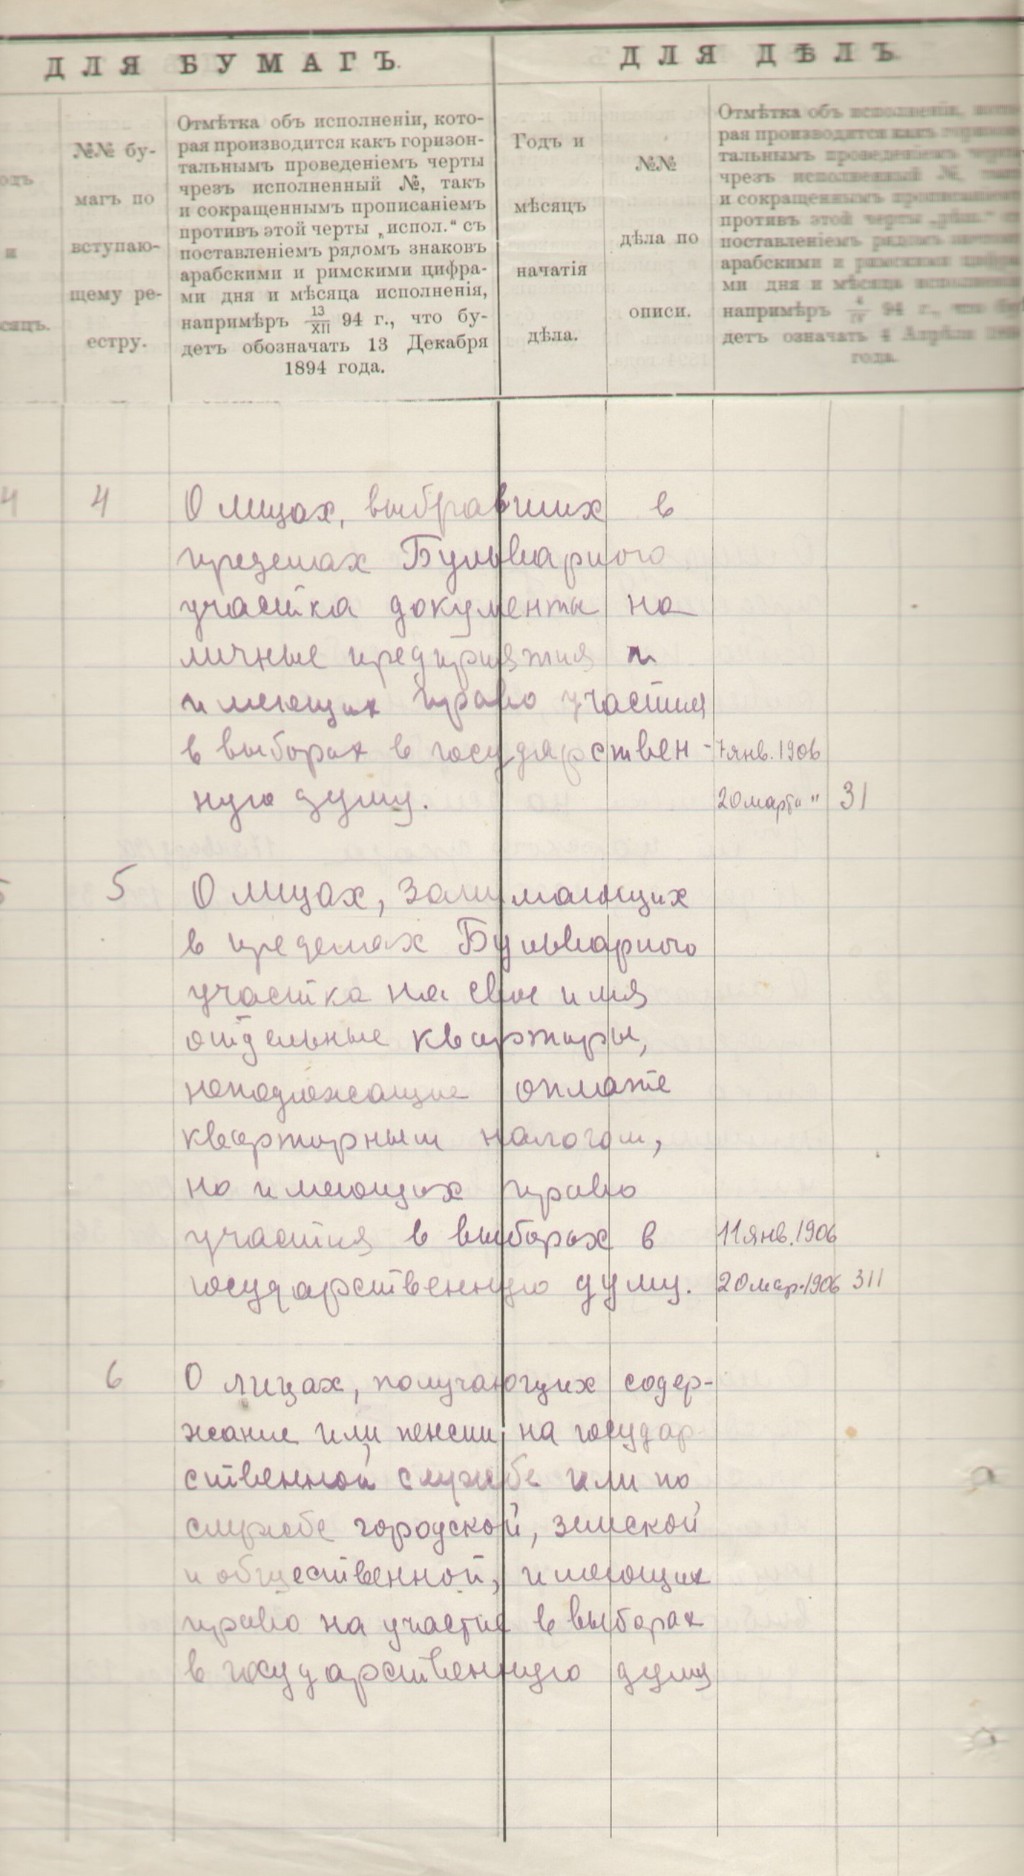 ДЛЯ БУМАГЪ.
№№ бу-
магъ по
вступаю-
щему ре-
естру.
Отмѣтка объ исполненіи, кото-
рая производится какъ горизон-
тальнымъ проведеніемъ черты
чрезъ исполненный №, такъ
и сокращеннымъ прописаніемъ
противъ этой черты „испол.“ съ
поставленіемъ рядомъ знаковъ
арабскими и римскими цифра-
ми дня и мѣсяца исполненія,
напримѣръ 13/XII 94 г., что бу-
детъ обозначать 13 Декабря
1894 года.
ДЛЯ ДѢЛЪ.
Годъ и
мѣсяцъ
начатія
дѣла.
№№
дѣла по
описи.
Отмѣтка объ исполненіи, кото-
рая производится какъ горизон-
тальнымъ проведеніемъ черты
чрезъ исполненный №, такъ
и сокращеннымъ прописаніемъ
противъ этой черты „
поставленіемъ рядомъ знаковъ
арабскими и римскими цифра-
ми дня и мѣсяца исполненія
напримѣръ 4/IV 94 г., что бу-
детъ означать 4 Апрѣля
года.
4 О лицах, выбравших в
пределах Бульварного
участка документы на
личные предприятия и
имеющих право участия
в выборах в государствен- 7 янв. 1906
ную думу. 20 марта " 31
5 О лицах, занимающих
в пределах Бульварного
участка на свое имя
отдельные квартиры,
неподлежащие оплате
квартирным налогом,
но имеющих право
участия в выборах в 11 янв. 1906
государственную думу. 20 мар. 1906 311
6 О лицах, получающих содер-
жание или пенсии на государ-
ственной службе или по
службе городской, земской
и общественной, имеющих
право на участие в выборах
в государственную думу